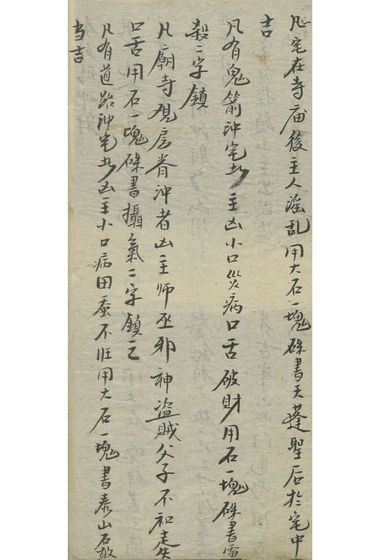 凡宅在寺庙後主人滛乱用大石一塊硃書天蓬聖后於宅中
吉
凡有鬼箭冲宅此主凶小口災病口舌破財用石一塊硃書雷
殺二字鎮
凡廟寺观房脊冲者凶主师巫邪神盗贼父子不和走失
口舌用石一塊硃書攝氣二字鎮之
凡有道路冲宅此凶主小口病田蚕不旺用大石一塊書泰山石敢
当吉